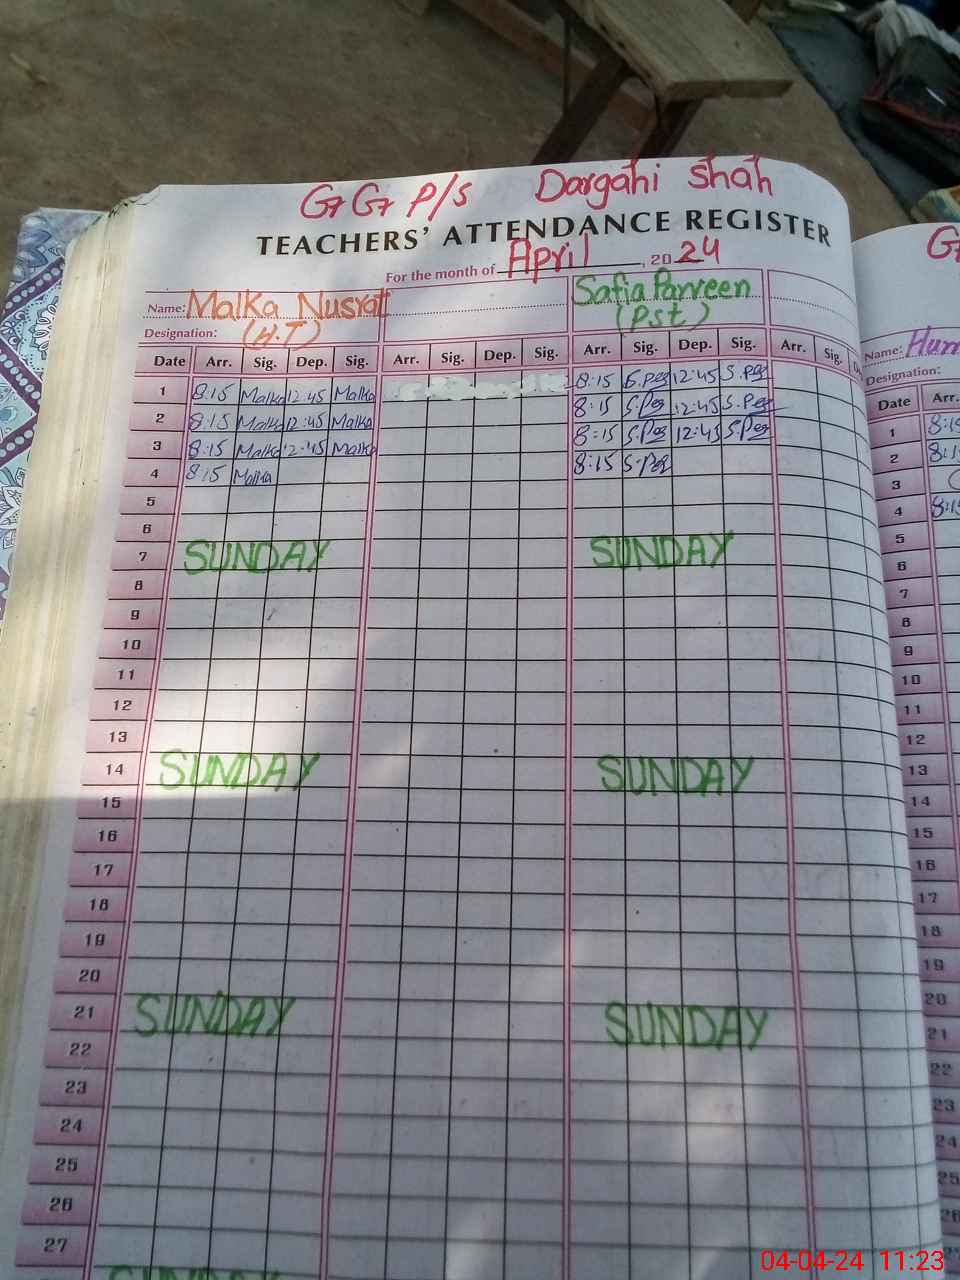 GG P/S Dargahi Shah
TEACHERS' ATTENDANCE REGISTER
For the month of April, 2024
Name: Malka Nusrat Safia Parveen
Designation: (H.T) (Pst)
Date Arr. Sig. Dep. Sig. Arr. Sig. Dep. Sig. Arr. Sig. Dep. Sig. Arr. Sig.
1 8:15 Malka 12:45 Malka 8:15 12:45
2 8:15 Malka 12:45 Malka 8:15 12:45
3 8:15 Malka 12:45 Malka 8:15 12:45
4 8:15 Malka 8:15
5
6
7 SUNDAY SUNDAY
8
9
10
11
12
13
14 SUNDAY SUNDAY
15
16
17
18
19
20
21 SUNDAY SUNDAY
22
23
24
25
26
27
SUNDAY
Name:
Designation:
Date Arr.
1
2
3
4
5
6
7
8
9
10
11
12
13
14
15
16
17
18
19
20
21
22
23
24
25
26
04-04-24 11:23